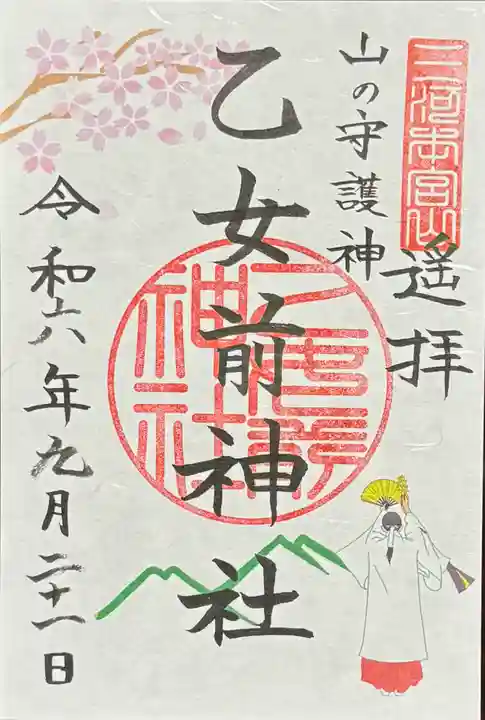 三河本宮山
遥拝
山の守護神
乙女前神社
令和六年九月二十一日